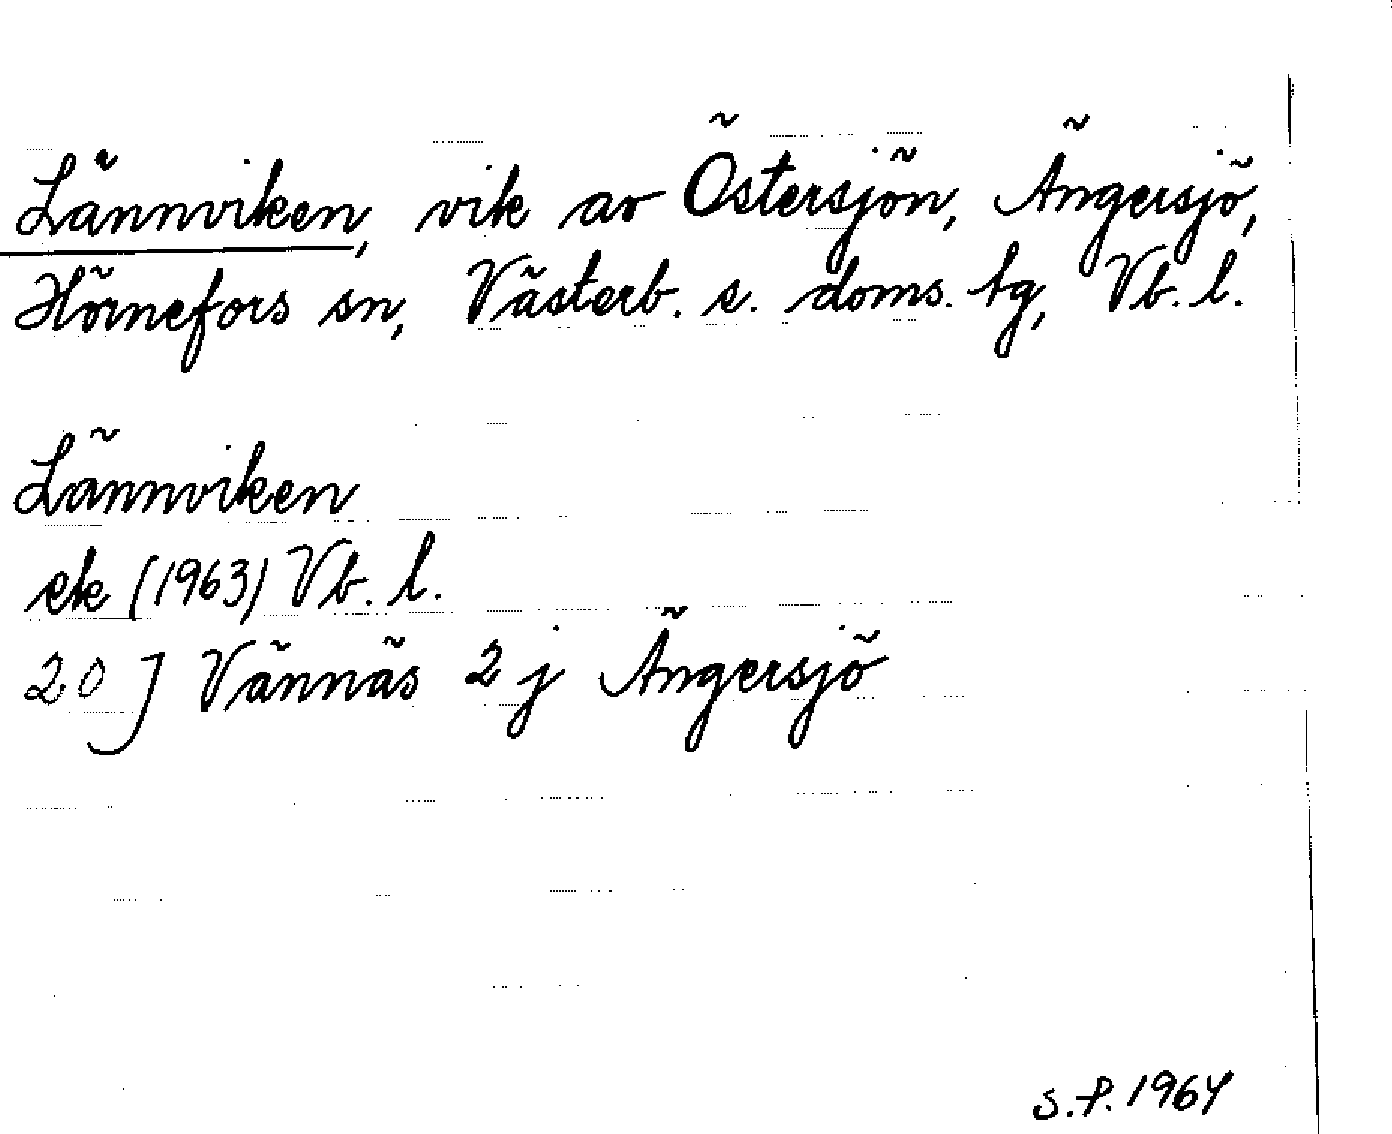 Lännviken, vik av Östersjön, Ängersjö,
Hörnefors sn, Västerb. s. doms. tg, Vb. l.
Lännviken
ek (1963) Vb. l.
20 J Vännäs 2 j Ängersjö
S.P. 1964